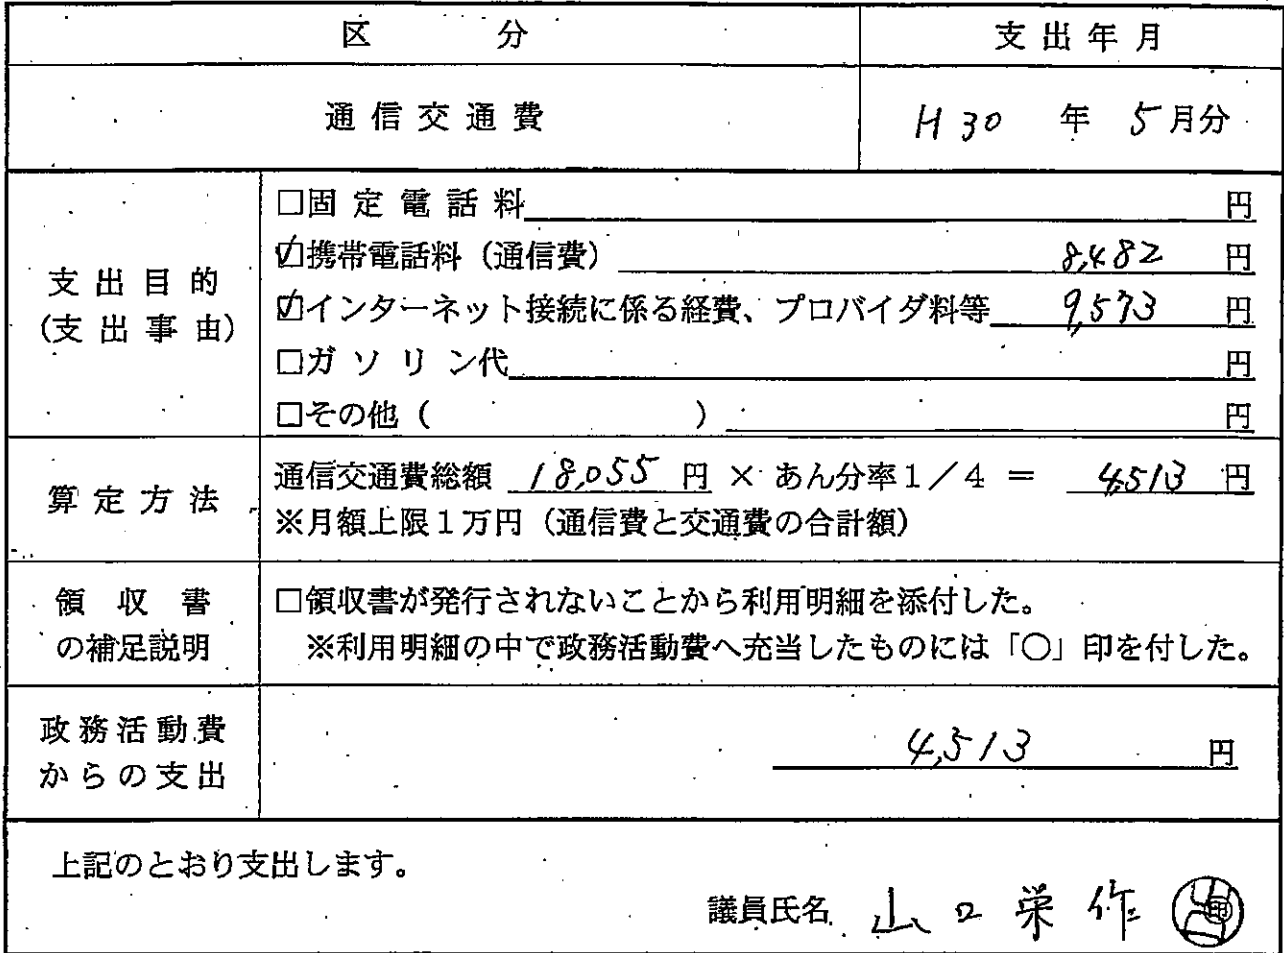 区 分 支出年月
通信交通費 H30 年 5月分
支出目的
(支出事由)
□固定電話料 円
☑携帯電話料（通信費） 8,482 円
☑インターネット接続に係る経費、プロバイダ料等 9,573 円
□ガソリン代 円
□その他（ ） 円
算定方法
通信交通費総額 18,055 円 × あん分率1／4 ＝ 4,513 円
※月額上限1万円（通信費と交通費の合計額）
領収書
の補足説明
□領収書が発行されないことから利用明細を添付した。
※利用明細の中で政務活動費へ充当したものには「○」印を付した。
政務活動費
からの支出
4,513 円
上記のとおり支出します。
議員氏名 山口栄作 印